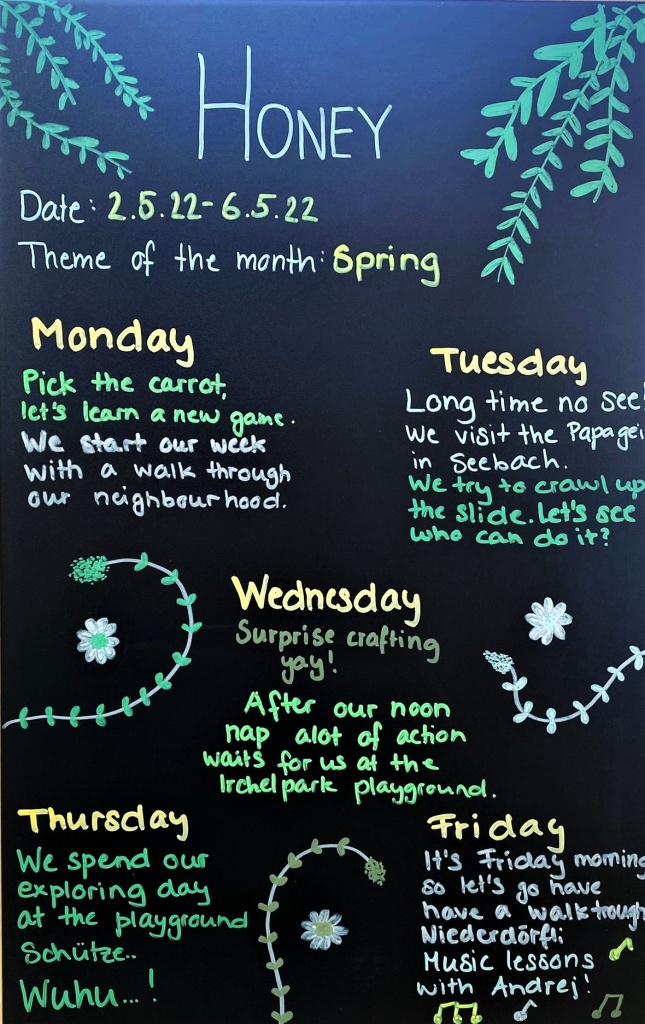 HONEY
Date: 2.5.22-6.5.22
Theme of the month: Spring
Monday
Pick the carrot,
let's learn a new game.
We start our week
with a walk through
our neighbourhood.
Tuesday
Long time no see!
We visit the Papagei
in Seebach.
We try to crawl up
the slide. Let's see
who can do it?
Wednesday
Surprise crafting
yay!
After our noon
nap alot of action
waits for us at the
Irchelpark playground.
Thursday
We spend our
exploring day
at the playground
Schütze..
Wuhu...!
Friday
It's Friday morning
so let's go have
have a walk trough
Niederdörfli
Music lessons
with Andrej!